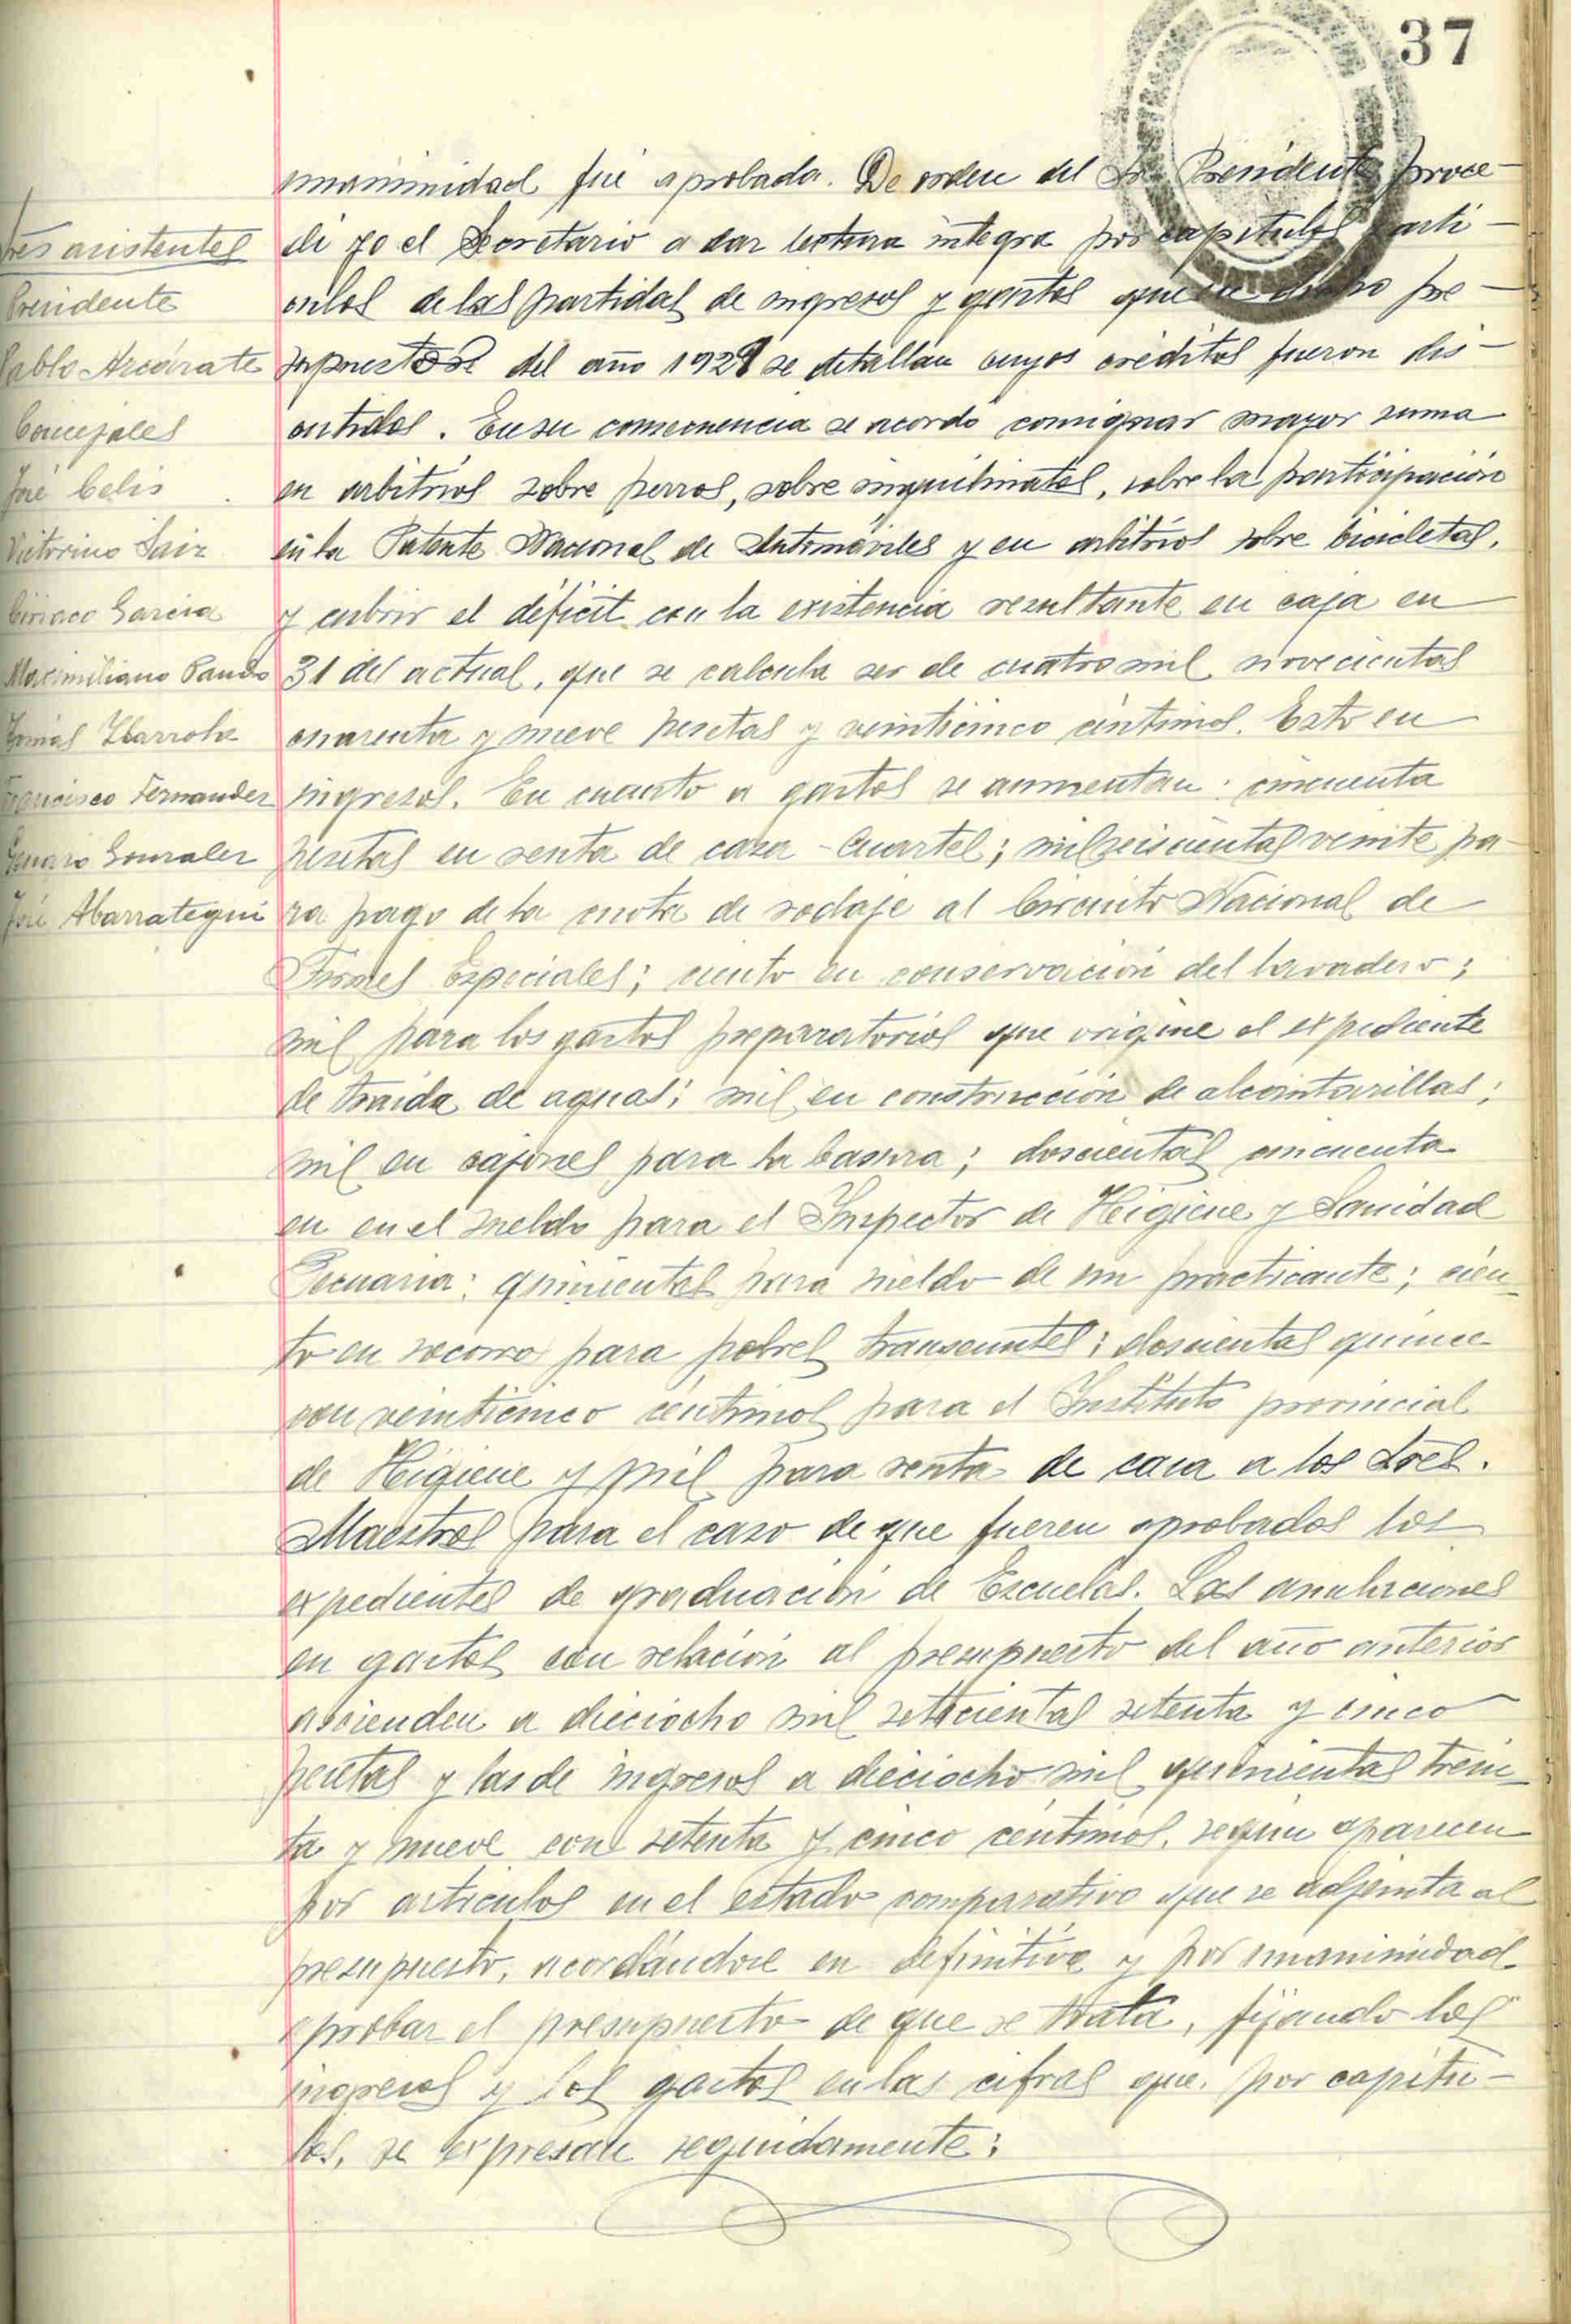 37
Sres asistentes
Presidente
Pablo Azcárate
Concejales
José Celis
Victorino Saiz
Ciriaco Garcia
Maximiliano Pando
Tomás Ibarrola
Francisco Fernandez
Genaro Gonzalez
José Abarrategui
unanimidad fué aprobada. De orden del Sr. Presidente proce-
dí yo el Secretario a dar lectura integra por capitulos y arti-
culos de las partidas de ingresos y gastos que en dicho pre-
supuesto del año 1928 se detallan cuyos créditos fueron dis-
cutidos. En su consecuencia se acordó consignar mayor suma
en arbitrios sobre perros, sobre inquilinatos, sobre la participación
en la Patente Nacional de Automóviles y en arbitrios sobre bicicletas,
y cubrir el déficit con la existencia resultante en caja en
31 del actual, que se calcula ser de cuatro mil novecientas
cuarenta y nueve pesetas y veinticinco céntimos. Esto en
ingresos. En cuanto a gastos se aumentan: cincuenta
pesetas en renta de casa-Cuartel; mil seiscientas veinte pa-
ra pago de la cuota de rodaje al Circuito Nacional de
Firmes Especiales; ciento en conservación del lavadero;
mil para los gastos preparatorios que origine el expediente
de traida de aguas; mil en construcción de alcantarillas;
mil en cajones para la basura; doscientas cincuenta
en en el sueldo para el Inspector de Higiene y Sanidad
Pecuaria; quinientas para sueldo de un practicante; cien-
to en socorro para pobres transeuntes; doscientas quince
con veinticinco céntimos para el Instituto provincial
de Higiene y mil para renta de casa a los Sres.
Maestros para el caso de que fueren aprobados los
expedientes de graduación de Escuelas. Las anulaciones
en gastos con relación al presupuesto del año anterior
ascienden a dieciocho mil setecientas setenta y cinco
pesetas y las de ingresos a dieciocho mil quinientas trein-
ta y nueve con setenta y cinco céntimos, según aparecen
por articulos en el estado comparativo que se adjunta al
presupuesto, acordándose en definitiva y por unanimidad
aprobar el presupuesto de que se trata, fijando los
ingresos y los gastos en las cifras que, por capitu-
los, se expresan seguidamente: